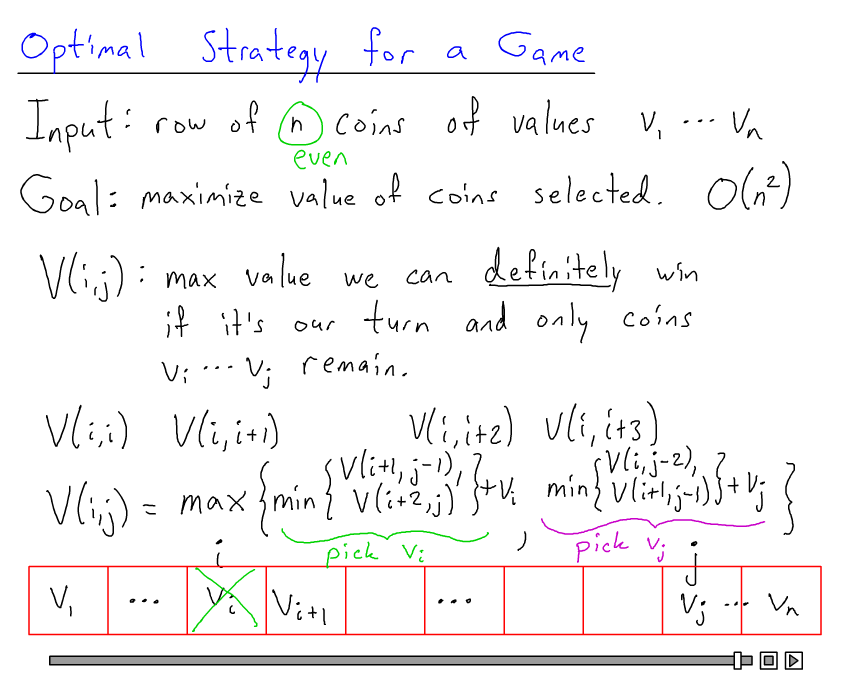 Optimal Strategy for a Game
Input: row of n coins of values v₁ ... vₙ
even
Goal: maximize value of coins selected. O(n²)
V(i,j): max value we can definitely win
if it's our turn and only coins
vᵢ ... vⱼ remain.
V(i,i) V(i,i+1) V(i,i+2) V(i,i+3)
V(i,j) = max { min { V(i+1,j-1), V(i+2,j) } + vᵢ , min { V(i,j-2), V(i+1,j-1) } + vⱼ }
pick vᵢ pick vⱼ
i j
v₁ ... vᵢ vᵢ₊₁ ... vⱼ ... vₙ